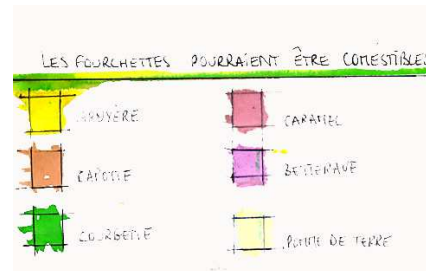 LES FOURCHETTES POURRAIENT ÊTRE COMESTIBLES
GRUYÈRE
CAROTTE
COURGETTE
CARAMEL
BETTERAVE
POMME DE TERRE